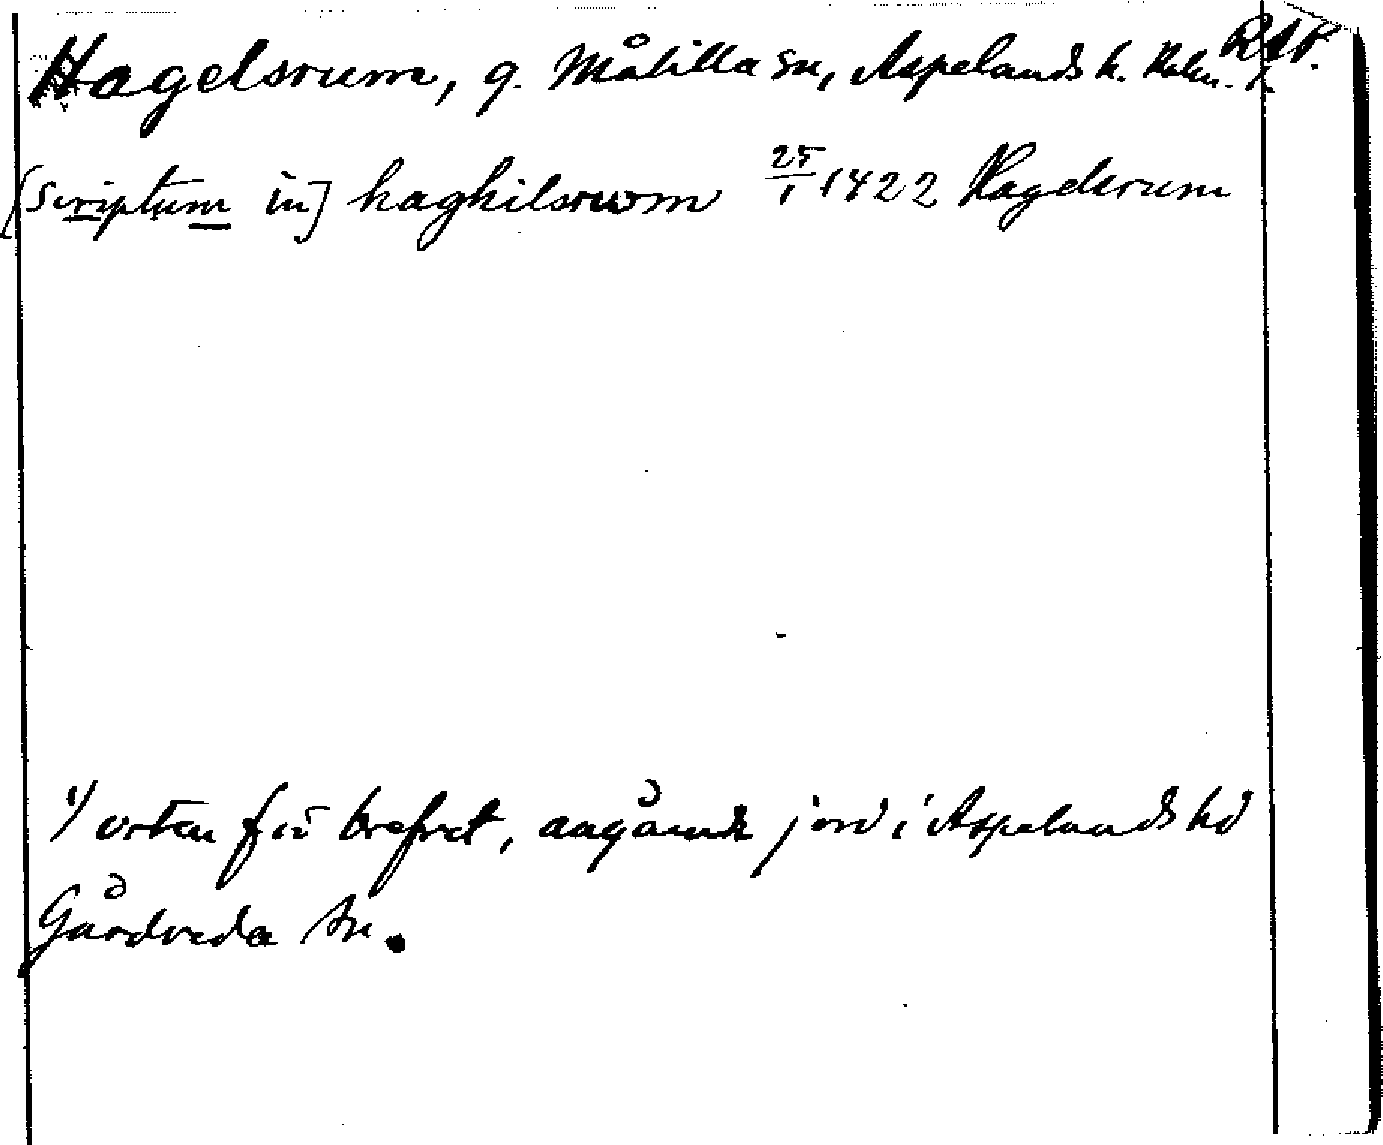 Hagelsrum, g. Målilla sn, Aspelands h. Kalm. l. RAP.
[scriptum in] haghilsrwm 25/1 1422 Hagelsrum
1/ orten för brefvet, angående jord i Aspelands hd
Gårdveda sn.